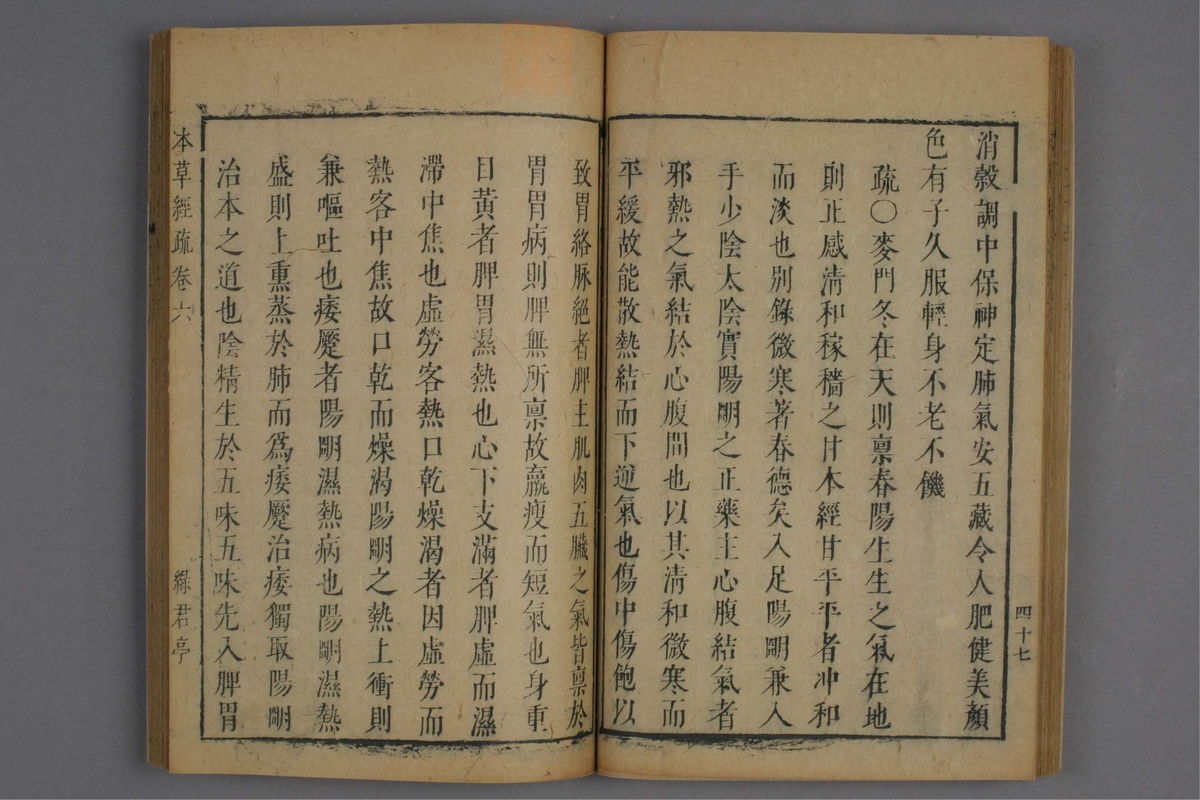 消穀調中保神定肺氣安五藏令人肥健美顏
色有子久服輕身不老不饑
疏○麥門冬在天則禀春陽生生之氣在地
則正感淸和稼穡之甘本經甘平平者冲和
而淡也别錄微寒著春德矣入足陽明兼入
手少陰太陰實陽明之正藥主心腹結氣者
邪熱之氣結於心腹間也以其淸和微寒而
平緩故能散熱結而下逆氣也傷中傷飽以
四十七
致胃絡脉絕者脾主肌肉五臟之氣皆禀於
胃胃病則脾無所禀故羸瘦而短氣也身重
目黃者脾胃濕熱也心下支滿者脾虛而濕
滯中焦也虛勞客熱口乾燥渴者因虛勞而
熱客中焦故口乾而燥渴陽明之熱上衝則
兼嘔吐也痿蹷者陽明濕熱病也陽明濕熱
盛則上熏蒸於肺而爲痿蹷治痿獨取陽明
治本之道也陰精生於五味五味先入脾胃
本草經疏卷六
綠君亭